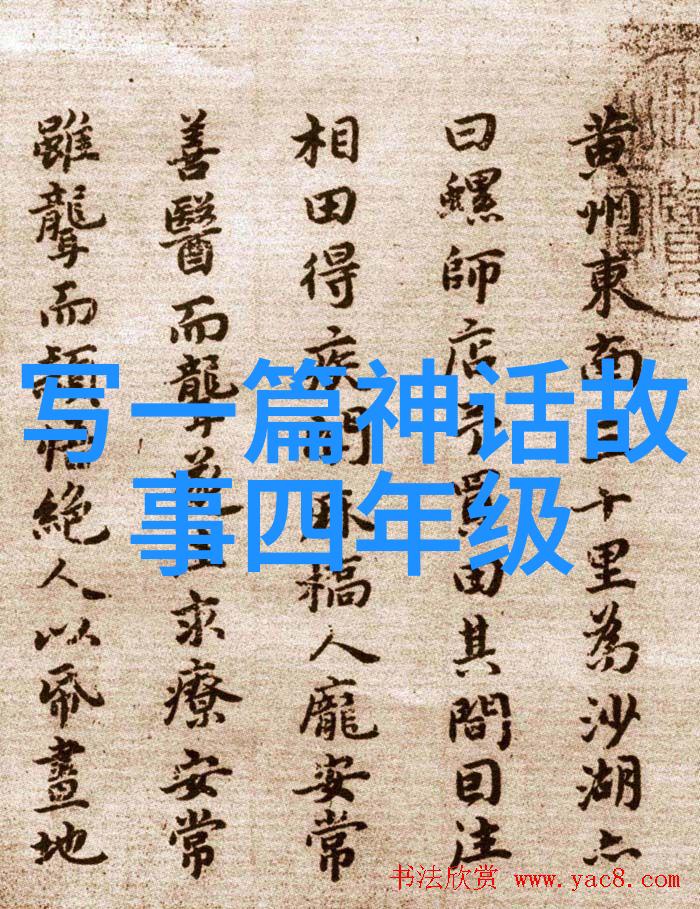 黄州東南三十里為沙湖亦
曰螺師店予買田其間囙往
相田得疾聞麻橋人龐安常
善醫而聾求療安常
雖聾而穎悟絶人以帋畫地
写一篇神话故
事四年级
书法欣赏 www.yac8.com